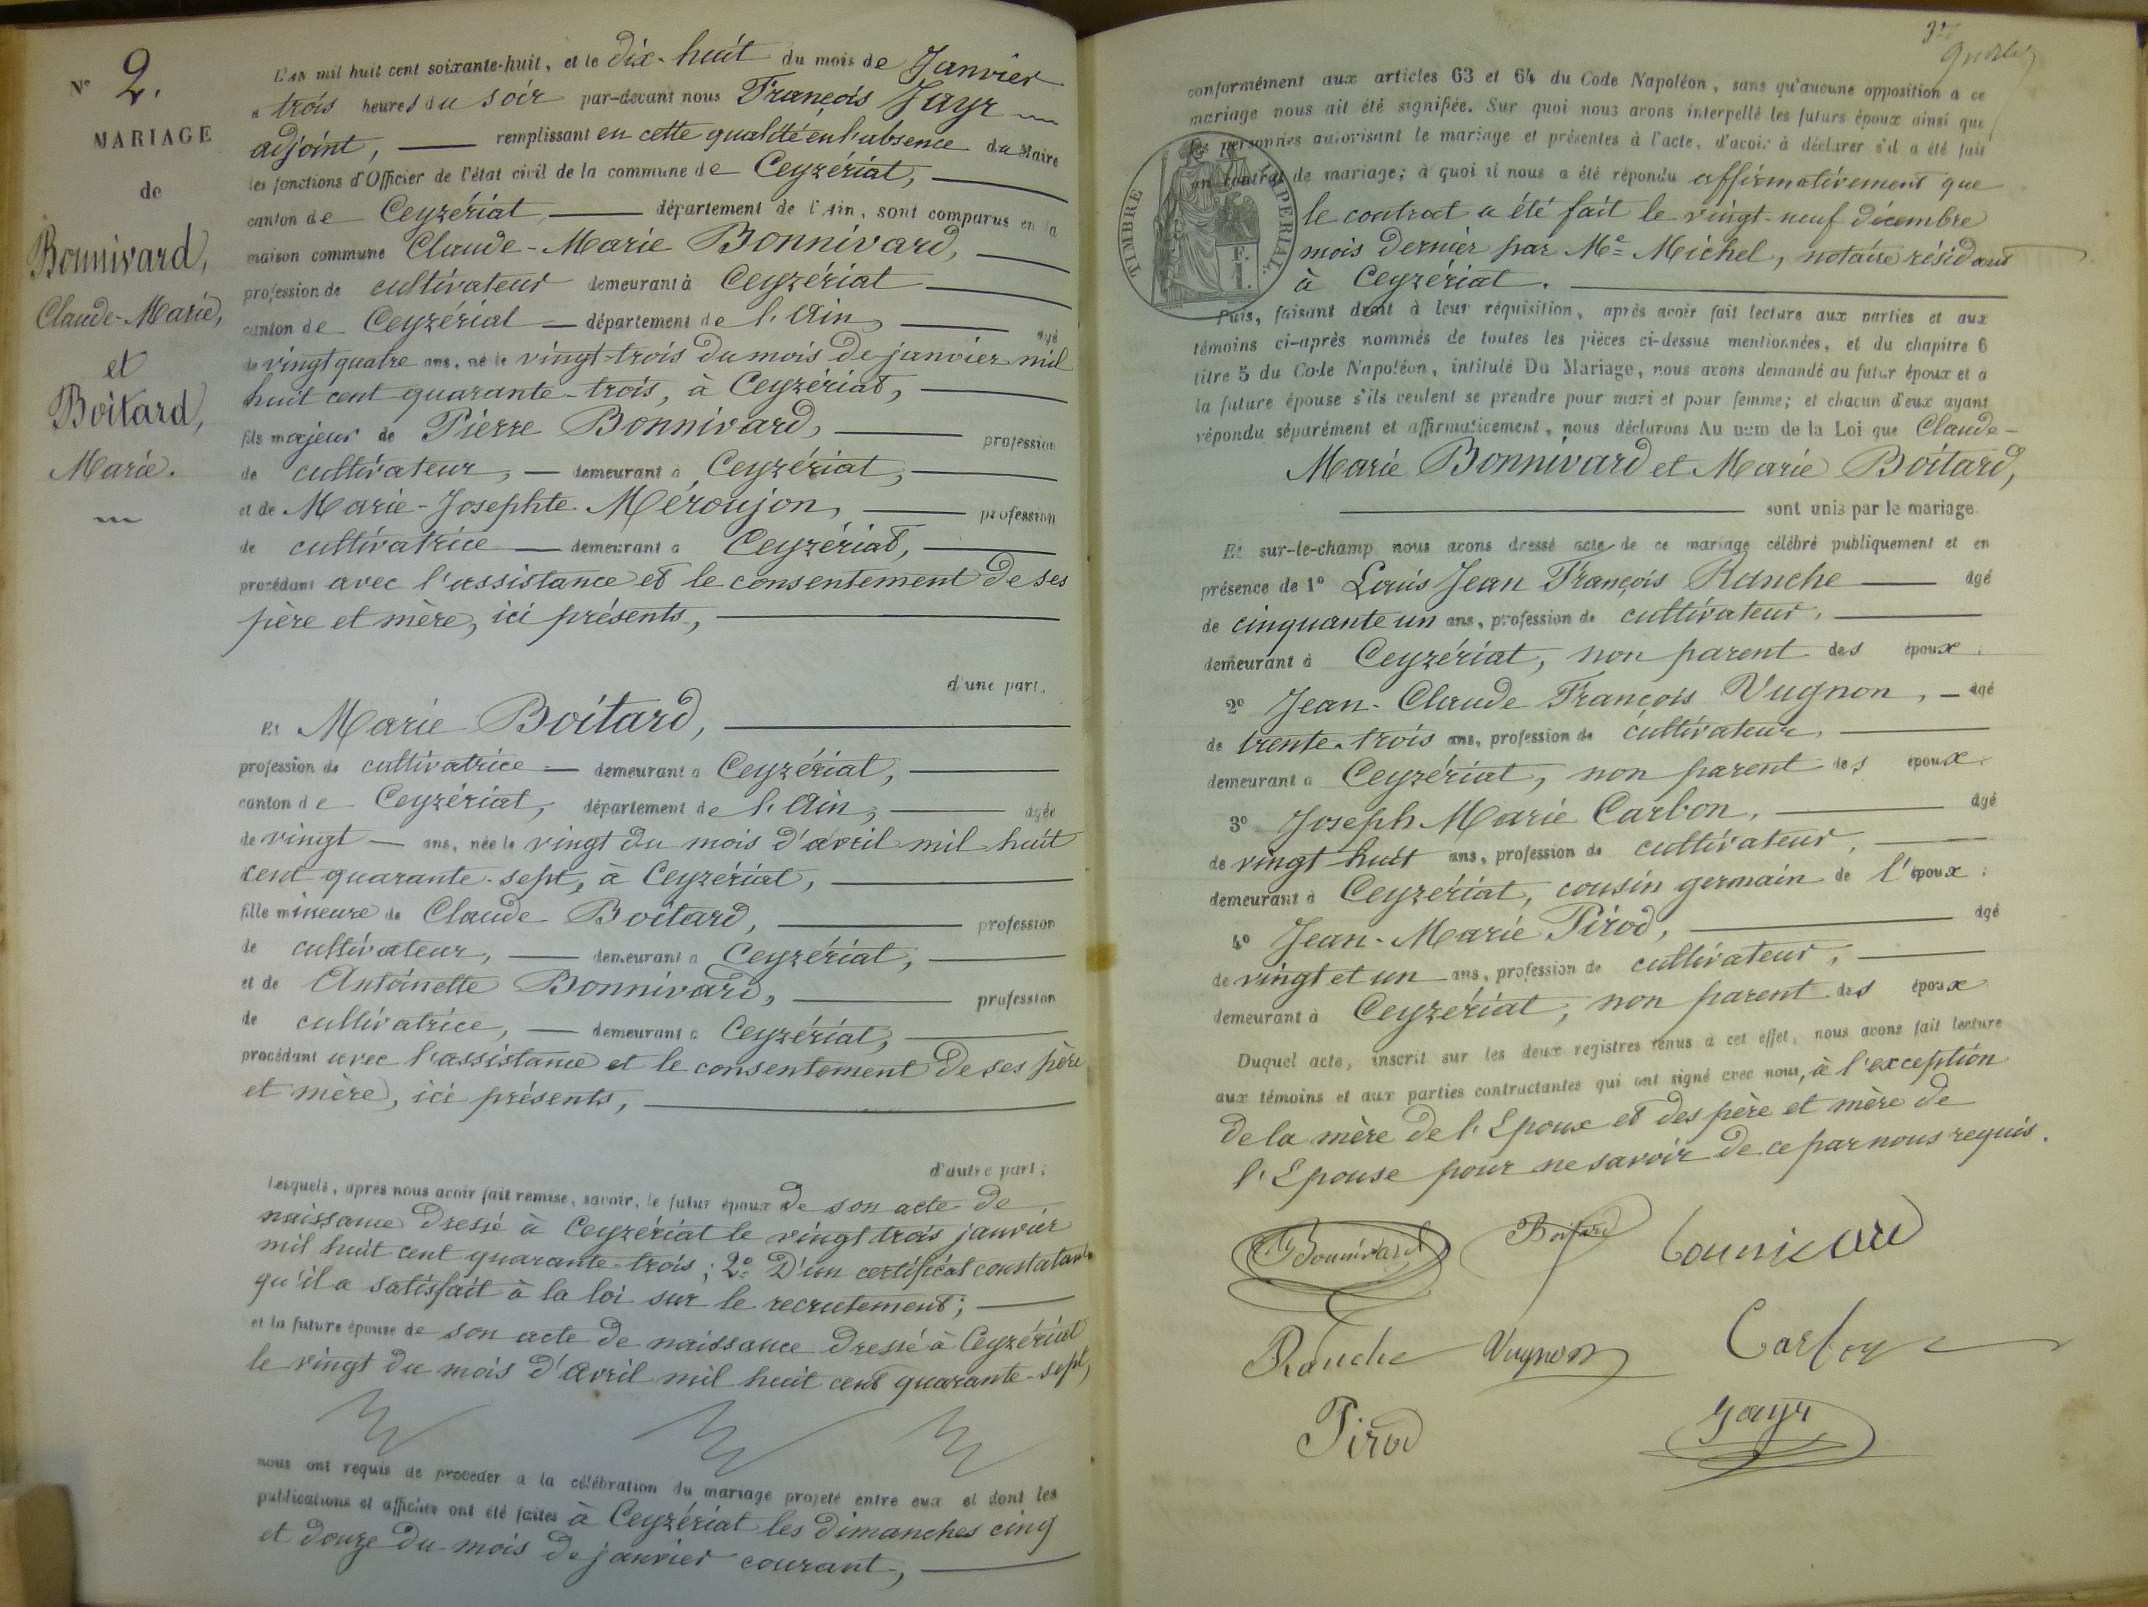 N° 2.
MARIAGE
de
Bonnivard,
Claude-Marie,
et
Boitard,
Marie.
L'an mil huit cent soixante-huit, et le dix-huit du mois de Janvier
à trois heures du soir par-devant nous François Jayr
adjoint, remplissant en cette qualité en l'absence du Maire
les fonctions d'Officier de l'état civil de la commune de Ceyzériat,
canton de Ceyzériat département de l'Ain, sont comparus en la
maison commune Claude-Marie Bonnivard,
profession de cultivateur demeurant à Ceyzériat
canton de Ceyzériat département de l'Ain, âgé
de vingt quatre ans, né le vingt-trois du mois de janvier mil
huit cent quarante-trois, à Ceyzériat,
fils majeur de Pierre Bonnivard, profession
de cultivateur, demeurant à Ceyzériat,
et de Marie-Josephte Méroujon, profession
de cultivatrice demeurant à Ceyzériat,
procédant avec l'assistance et le consentement de ses
père et mère, ici présents,
d'une part.
Et Marie Boitard,
profession de cultivatrice demeurant à Ceyzériat,
canton de Ceyzériat, département de l'Ain, âgée
de vingt ans, née le vingt du mois d'avril mil huit
cent quarante-sept, à Ceyzériat,
fille mineure de Claude Boitard, profession
de cultivateur, demeurant à Ceyzériat,
et de Antoinette Bonnivard, profession
de cultivatrice, demeurant à Ceyzériat,
procédant avec l'assistance et le consentement de ses père
et mère, ici présents,
d'autre part;
Lesquels, après nous avoir fait remise, savoir, le futur époux de son acte de
naissance dressé à Ceyzériat le vingt trois janvier
mil huit cent quarante-trois; 2° D'un certificat constatant
qu'il a satisfait à la loi sur le recrutement;
et la future épouse de son acte de naissance dressé à Ceyzériat
le vingt du mois d'avril mil huit cent quarante-sept,
nous ont requis de procéder à la célébration du mariage projeté entre eux et dont les
publications et affiches ont été faites à Ceyzériat les dimanches cinq
et douze du mois de janvier courant,
conformément aux articles 63 et 64 du Code Napoléon, sans qu'aucune opposition à ce
mariage nous ait été signifiée. Sur quoi nous avons interpellé les futurs époux ainsi que
les personnes autorisant le mariage et présentes à l'acte, d'avoir à déclarer s'il a été fait
un contrat de mariage; à quoi il nous a été répondu affirmativement que
le contrat a été fait le vingt-neuf décembre
mois dernier par Me Michel, notaire résidant
à Ceyzériat.
TIMBRE IMPÉRIAL.
F.
1.
Puis, faisant droit à leur réquisition, après avoir fait lecture aux parties et aux
témoins ci-après nommés de toutes les pièces ci-dessus mentionnées, et du chapitre 6
titre 5 du Code Napoléon, intitulé Du Mariage, nous avons demandé au futur époux et à
la future épouse s'ils veulent se prendre pour mari et pour femme; et chacun d'eux ayant
répondu séparément et affirmativement, nous déclarons Au nom de la Loi que Claude-
Marie Bonnivard et Marie Boitard,
sont unis par le mariage.
Et sur-le-champ nous avons dressé acte de ce mariage célébré publiquement et en
présence de 1° Louis Jean François Ranche âgé
de cinquante un ans, profession de cultivateur,
demeurant à Ceyzériat, non parent des époux;
2° Jean-Claude François Vugnon, âgé
de trente-trois ans, profession de cultivateur,
demeurant à Ceyzériat, non parent des époux
3° Joseph Marie Carbon, âgé
de vingt huit ans, profession de cultivateur,
demeurant à Ceyzériat, cousin germain de l'époux;
4° Jean-Marie Pirod, âgé
de vingt et un ans, profession de cultivateur,
demeurant à Ceyzériat, non parent des époux
Duquel acte, inscrit sur les deux registres tenus à cet effet, nous avons fait lecture
aux témoins et aux parties contractantes qui ont signé avec nous, à l'exception
de la mère de l'Epoux et des père et mère de
l'Epouse pour ne savoir de ce par nous requis.
Bonnivard Boitard Bonnivard
Ranche Vugnon Carbon
Pirod Jayr